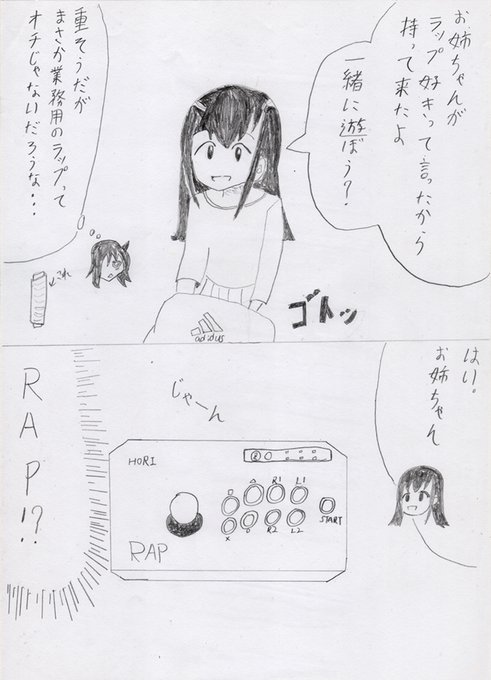 お姉ちゃんが
ラップ好きって言ったから
持って来たよ
一緒に遊ぼう?
重そうだが
まさか業務用のラップって
オチじゃないだろうな・・・
これ
ゴトッ
adidus
はい。
お姉ちゃん
じゃーん
HORI
R1 L1
R2 L2
START
RAP
RAP!?